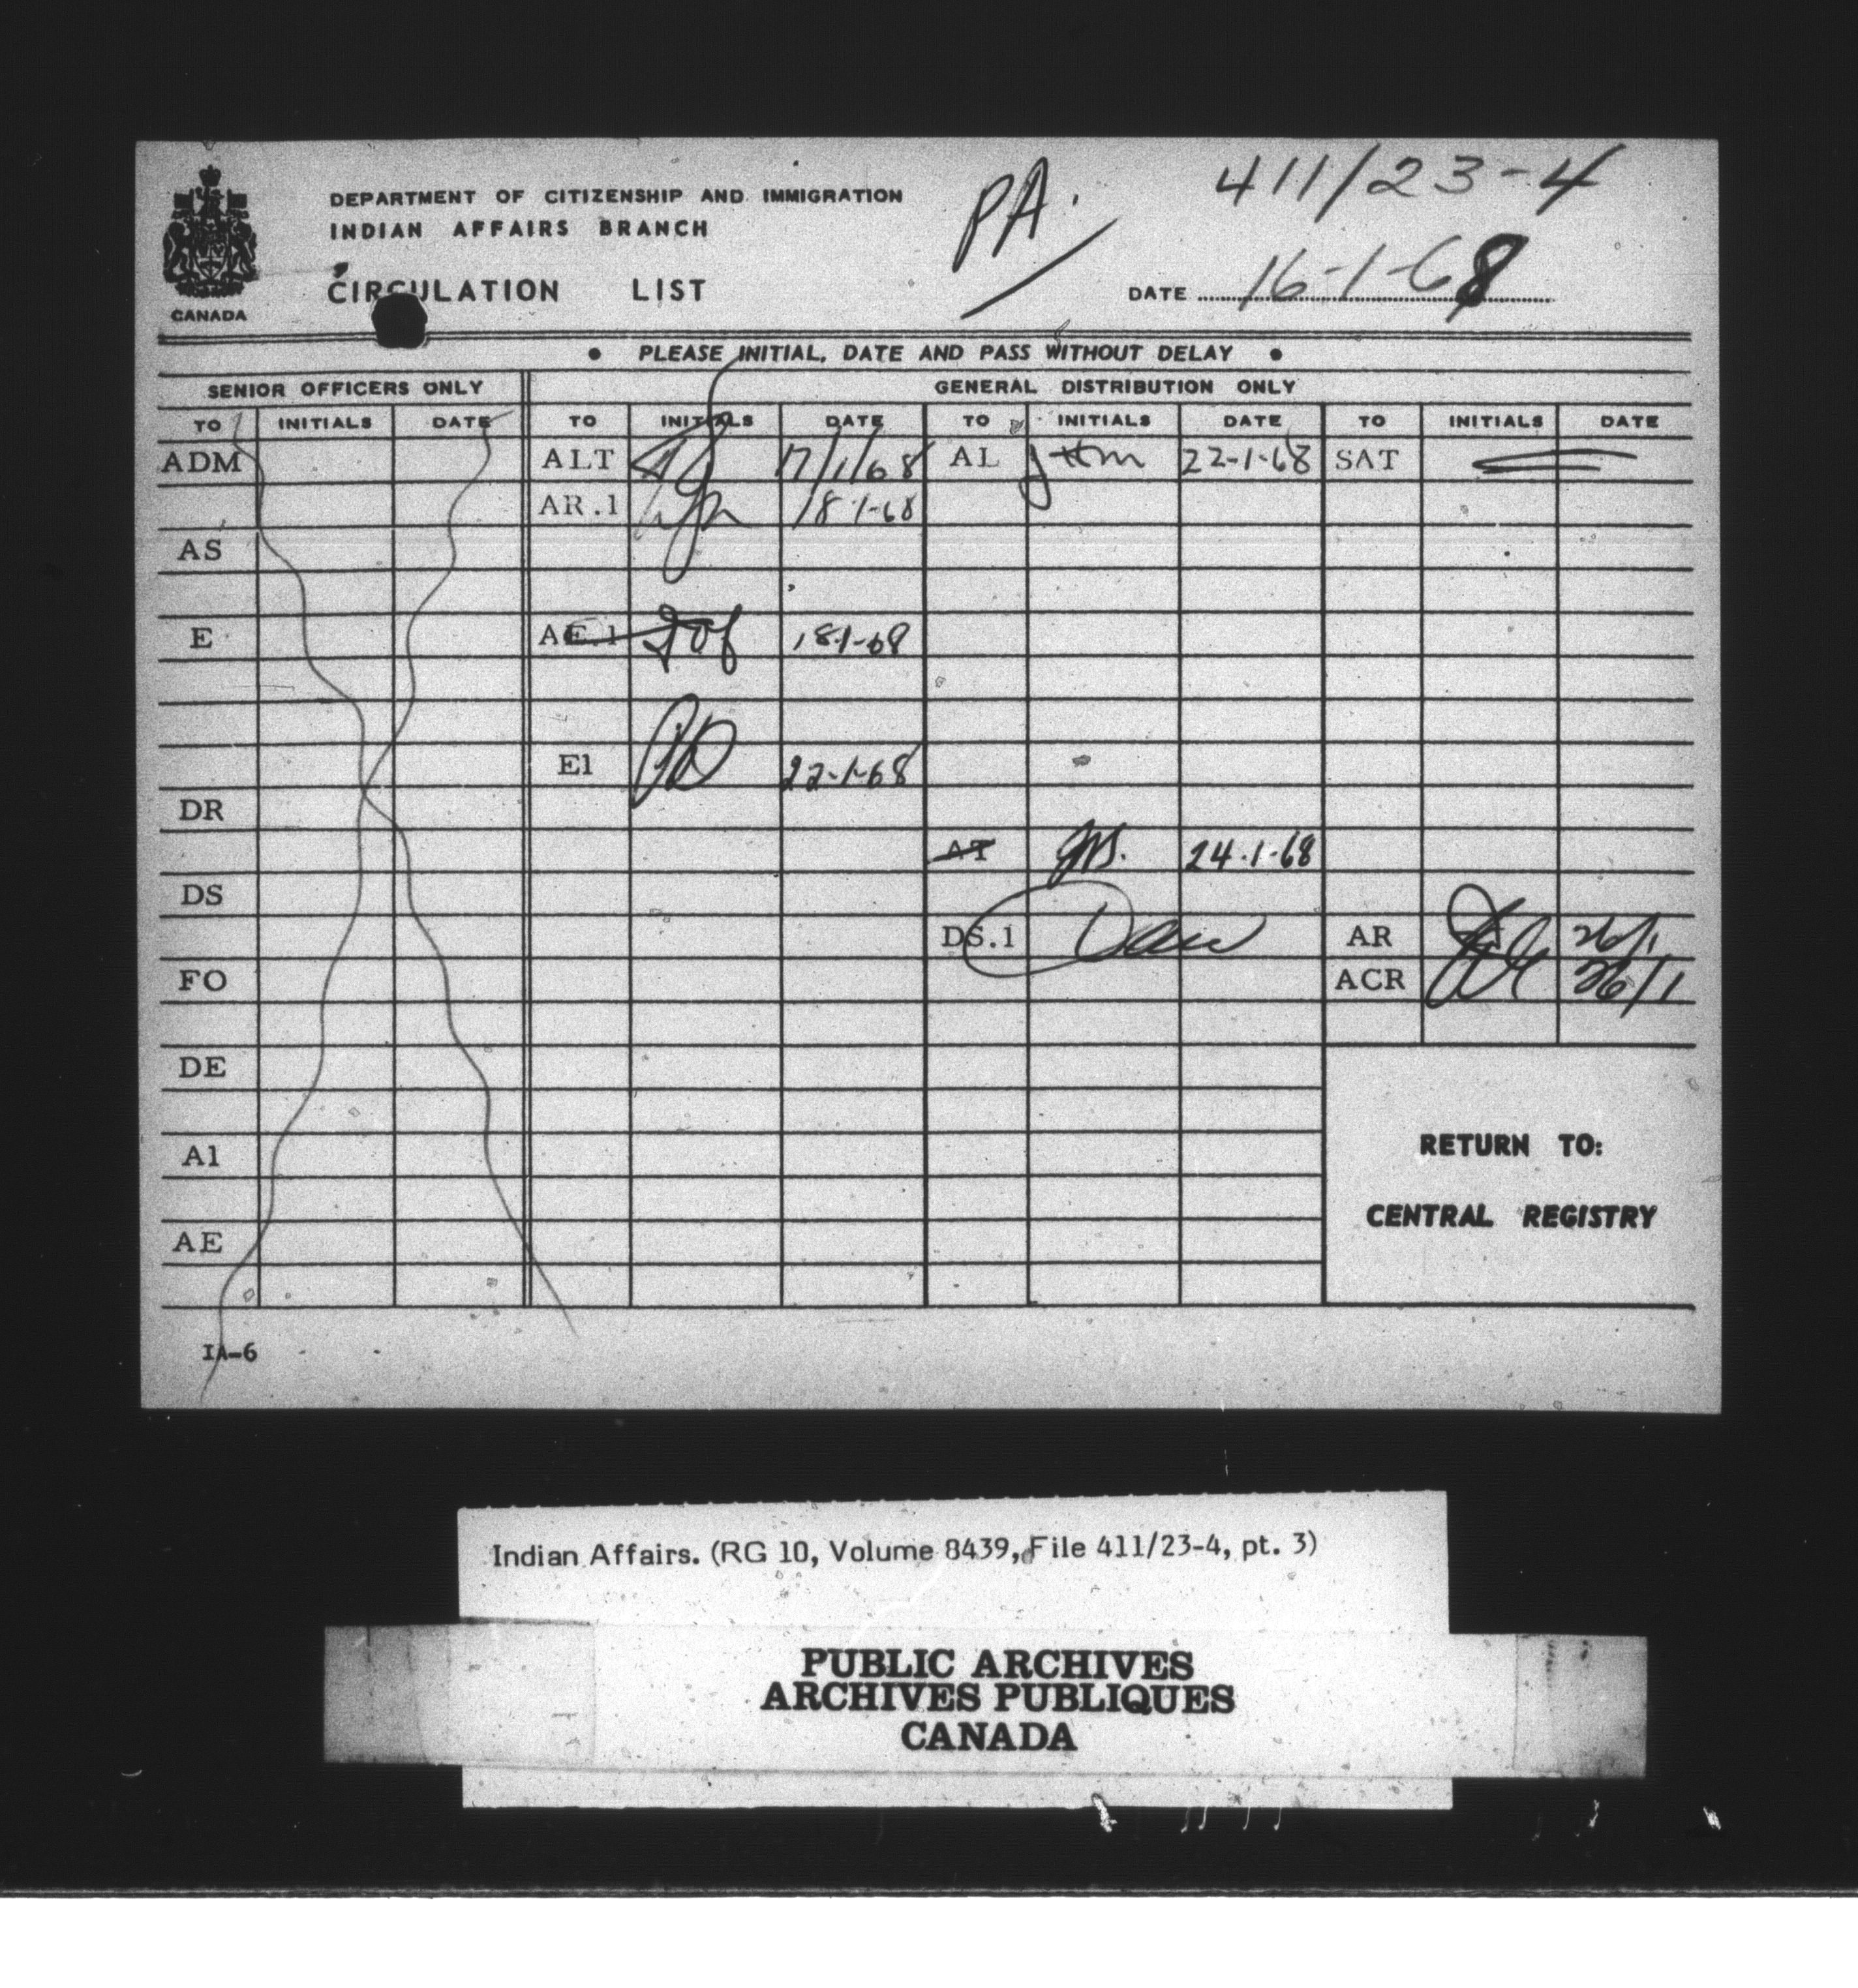 411/23-4
PA.
DEPARTMENT OF CITIZENSHIP AND IMMIGRATION
INDIAN AFFAIRS BRANCH
CIRCULATION LIST
DATE 16-1-68
CANADA
• PLEASE INITIAL, DATE AND PASS WITHOUT DELAY •
SENIOR OFFICERS ONLY GENERAL DISTRIBUTION ONLY
TO INITIALS DATE TO INITIALS DATE TO INITIALS DATE TO INITIALS DATE
ADM ALT 17/1/68 AL 22-1-68 SAT
AR.1 18-1-68
AS
E AE.1 18-1-68
E1 22-1-68
DR
AT 24-1-68
DS
DS.1 AR 26/1
FO ACR 26/1
DE
A1
RETURN TO:
CENTRAL REGISTRY
AE
IA-6
Indian Affairs. (RG 10, Volume 8439, File 411/23-4, pt. 3)
PUBLIC ARCHIVES
ARCHIVES PUBLIQUES
CANADA